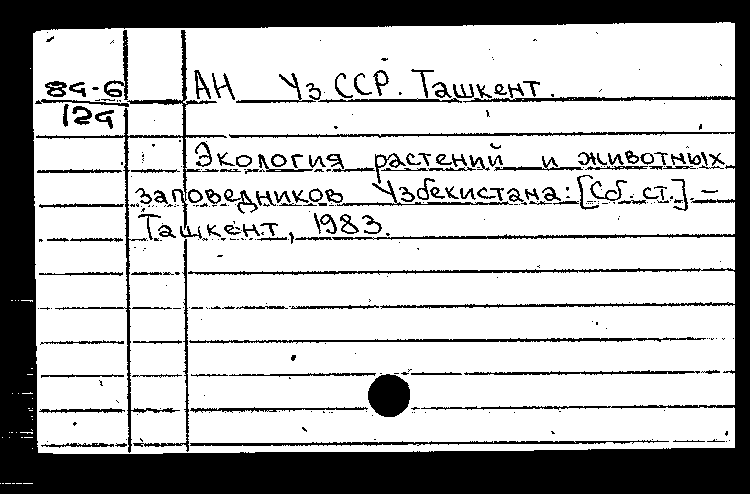 84-6 АН Уз ССР. Ташкент.
124
Экология растений и животных
заповедников Узбекистана: [Сб. ст.] –
Ташкент, 1983.